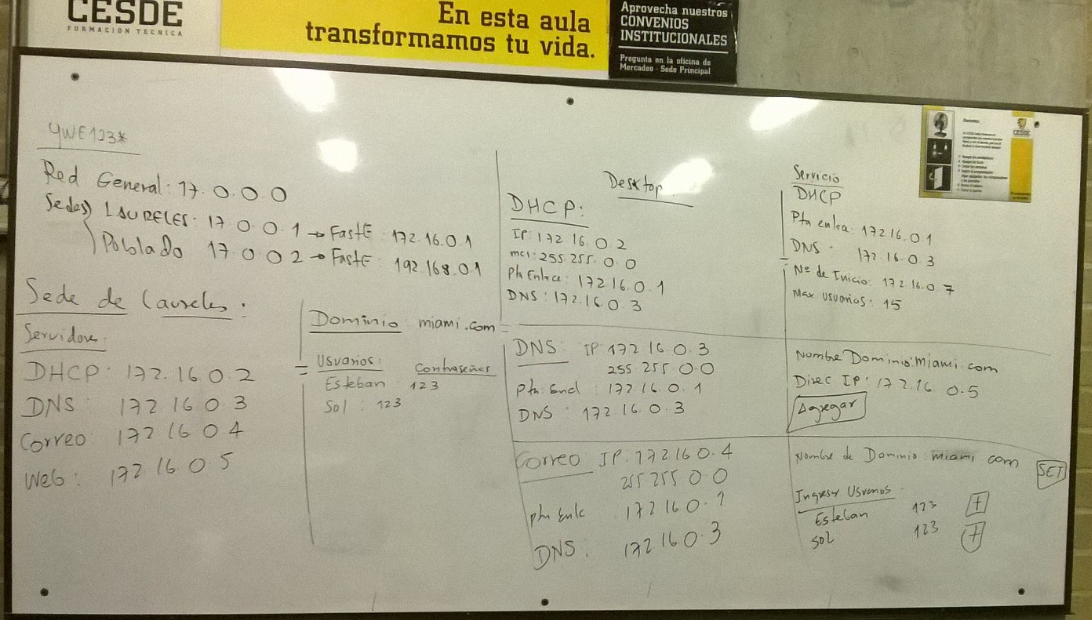 CESDE
FORMACIÓN TÉCNICA
En esta aula
transformamos tu vida.
Aprovecha nuestros
CONVENIOS
INSTITUCIONALES
Pregunta en la oficina de
Mercadeo - Sede Principal
CESDE
qwE123*
Red General: 17.0.0.0
Sedes) LAURELES: 17.0.0.1 → FastE: 172.16.0.1
Poblado 17.0.0.2 → FastE: 192.168.0.1
Sede de Laureles:
Servidores:
DHCP: 172.16.0.2
DNS: 172 16 0 3
Correo: 172 16 0 4
Web: 172 16 0 5
Dominio: miami.com =
= Usuarios: Contraseñas
Esteban 123
Sol : 123
Desktop
DHCP:
IP: 172 16 0 2
255.255.0.0
Pta Enlace: 172 16 0 1
DNS: 172 16 0 3
DNS: IP 172 16 0 3
255 255 0 0
Pta Enl : 172 16 0 1
DNS : 172 16 0 3
Correo IP: 172 16 0 4
255 255 0 0
pta Enlc 172 16 0 1
DNS: 172 16 0 3
Servicio
DHCP
Pta enlca: 172 16 0 1
DNS: 172 16 0 3
Nº de Inicio: 172 16 0 7
Max Usuarios: 15
Nombre Dominio: miami.com
Direc IP: 172.16 0.5
Agregar
Nombre de Dominio: miami com SET
Ingresar Usuarios
Esteban 123 +
Sol 123 +